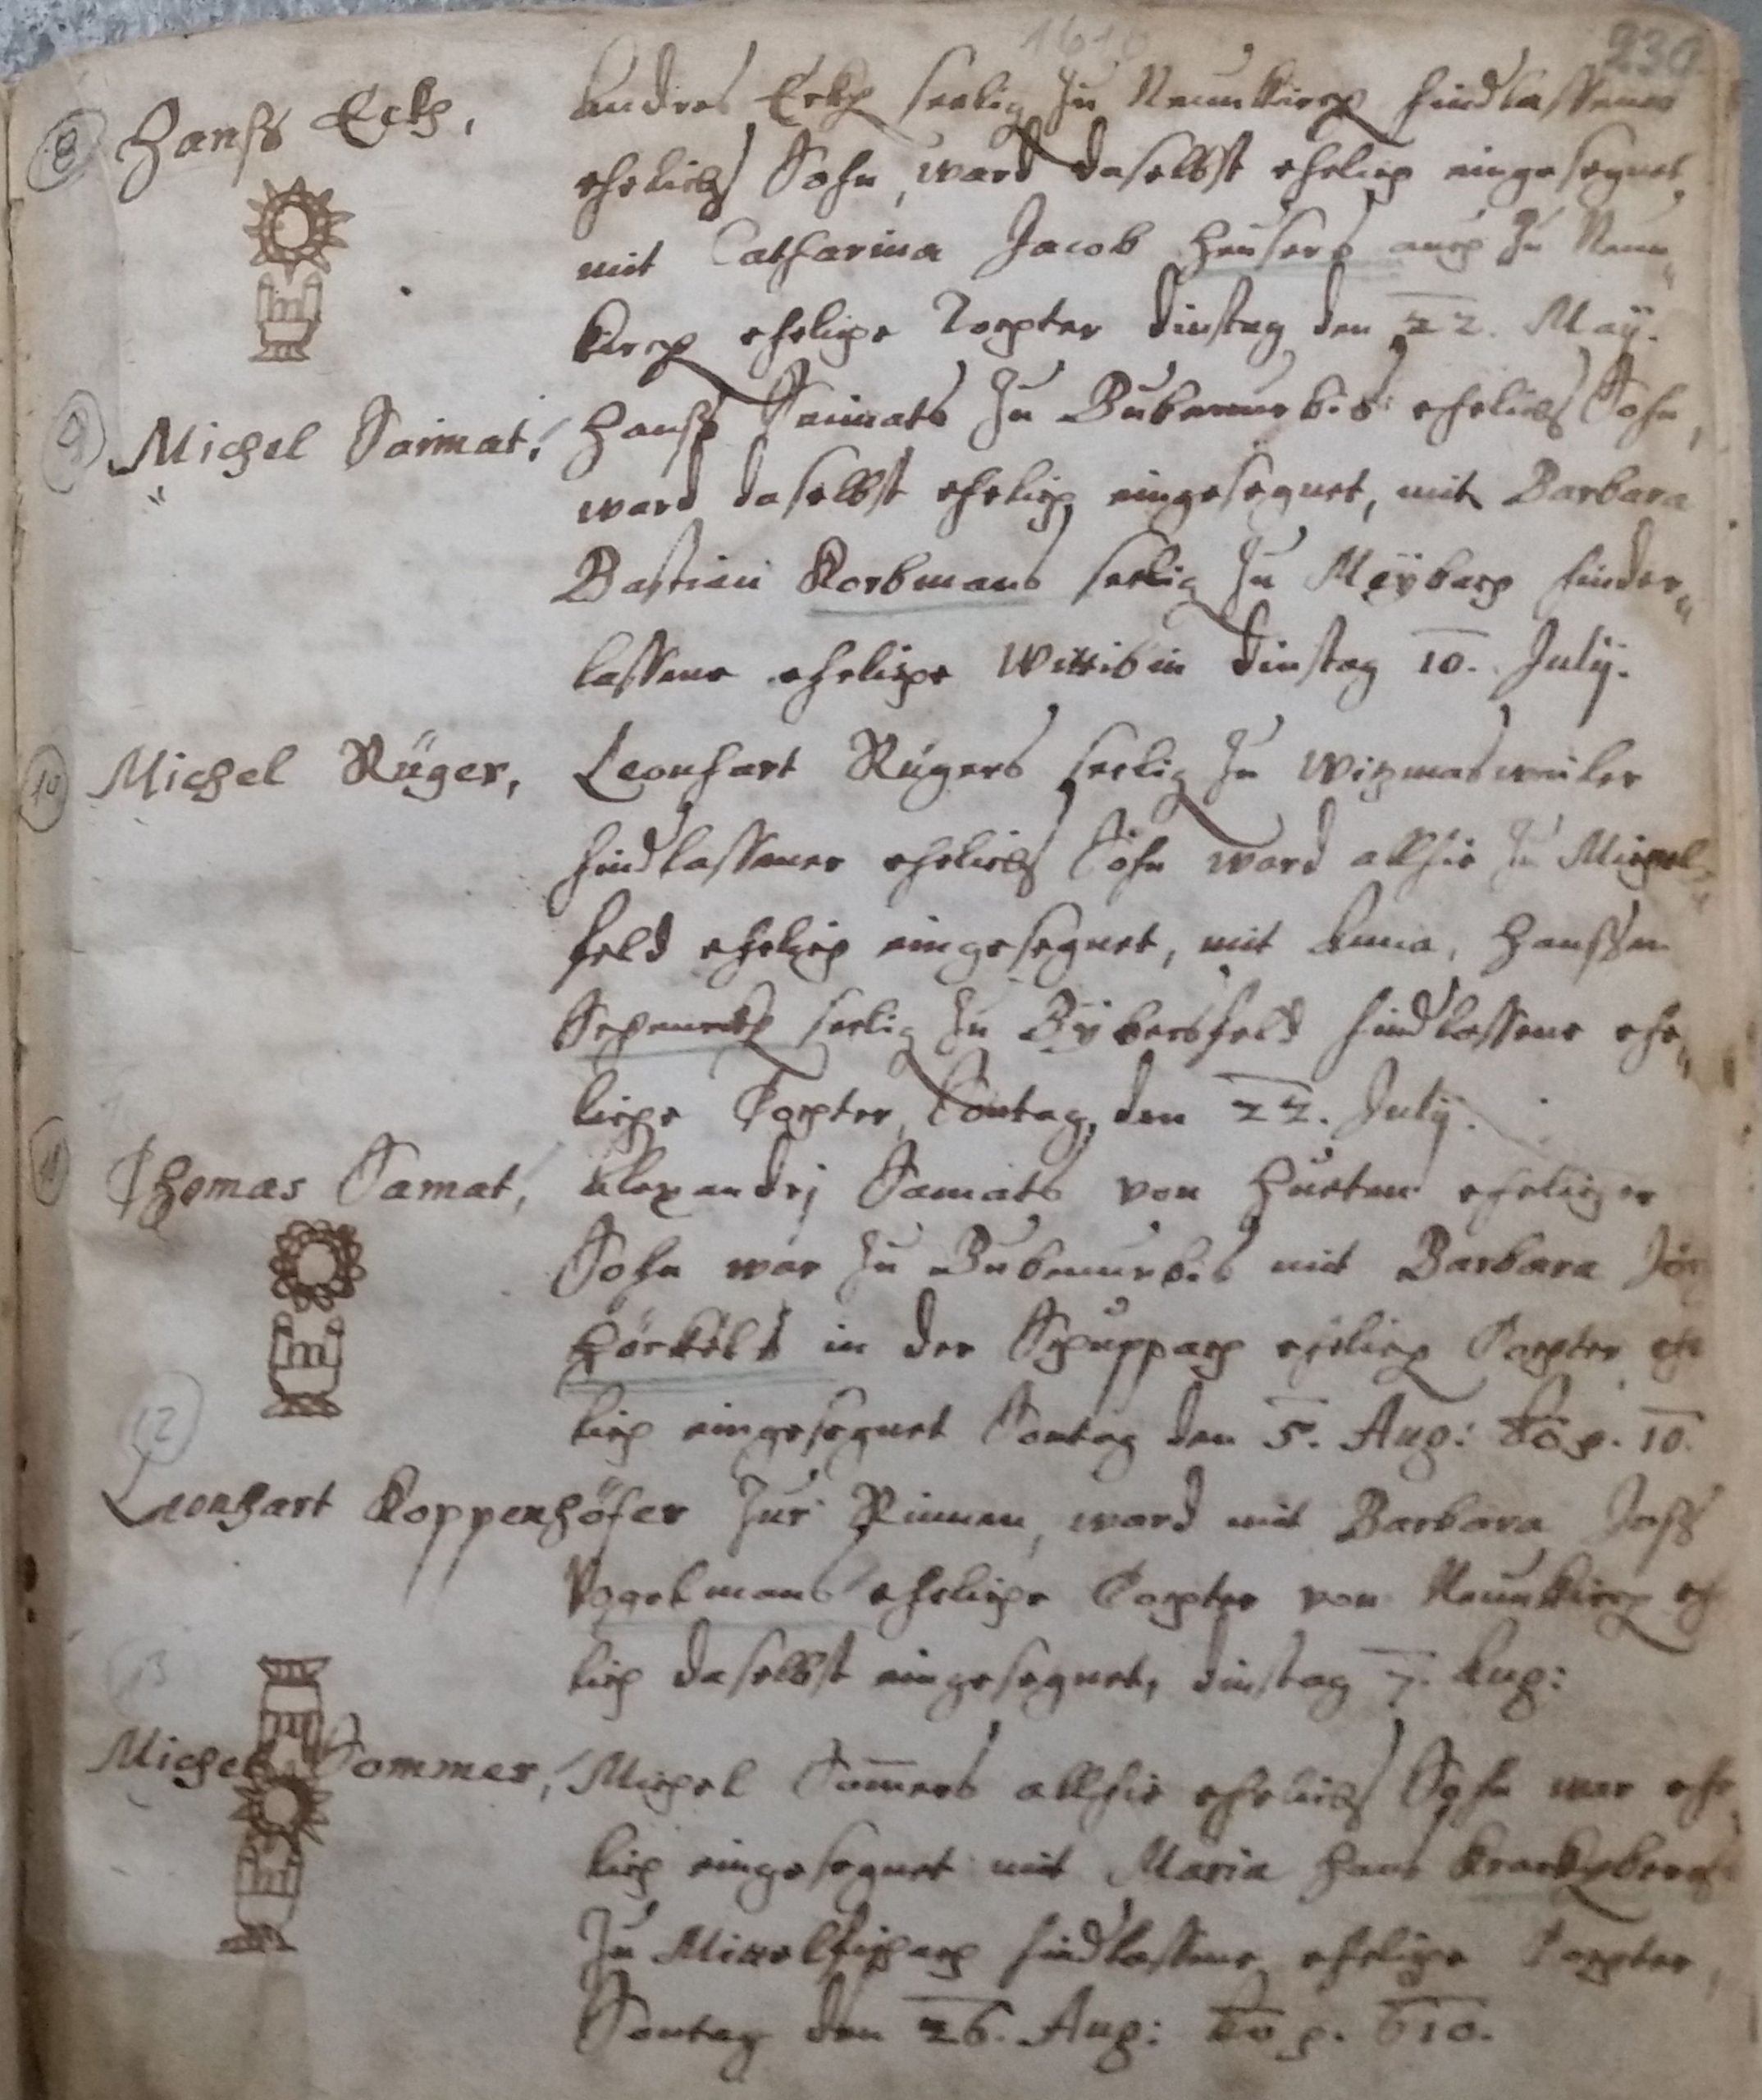 1610
230
8 Hanß Eckh, Andres Eckh seelig zu Neunkirch hindlassener
ehelichs Sohn, ward daselbst ehlich eingesegnet,
mit Catharina Jacob Heüsers auch zu Neun„
kirch ehelige Tochter dinstag den 22. Maÿ.
9 Michel Saimat, Hanß Saimats zu Bubenurbis ehelichs Sohn,
ward daselbst ehelich eingesegnet, mit Barbara
Bastian Korbmans seelig zu Meÿbach hinder„
lassene eheliche Wittibin dinstag 10. Julij.
10 Michel Rüger, Leonhart Rügers seelig zu Witzmasweiler
hindlassener ehelichs Sohn ward allhie zu Michel„
feld ehelich eingesegnet, mit Anna, Hanssen
seelig zu Bÿbersfeld hindlassene ehe„
liche Tochter, Sontag, den 22. Julij.
11 Thomas Samat, Alexandrj Samats von Hüeten ehelicher
Sohn war zu Bubenurbis mit Barbara Jör
Hörkels in der Schuppach ehelich Tochter ehe
lich eingesegnet Sontag den 5. Aug: 10.
12
Leonhart Koppenhöfer zur Rinnen, ward mit Barbara Joß
Vogelmans eheliche Tochter von Neunkirch eh
lich daselbst eingesegnet, dinstag 7. Aug:
13
Michel Sommer, Michel Som̄ers allhie ehelichs Sohn war ehe
lich eingesegnet mit Maria Hans
zu Mittelfischach hindlassene eheliche Tochter,
Sontag den 26. Aug: 10.